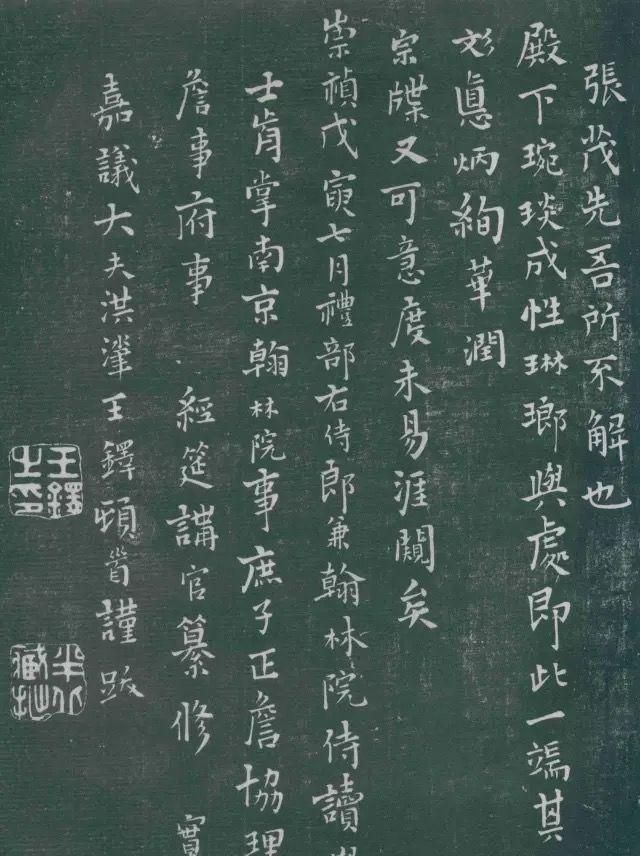 張茂先吾所不解也
殿下琬琰成性琳瑯與處即此一端其
彣悳炳絢華潤
宗牒又可意度未易涯闚矣
崇禎戊寅七月禮部右侍郎兼翰林院侍讀
士掌南京翰林院事庶子正詹協理
詹事府事 經筵講官纂修 實
嘉議大夫洪王鐸頓首謹跋
王鐸之印